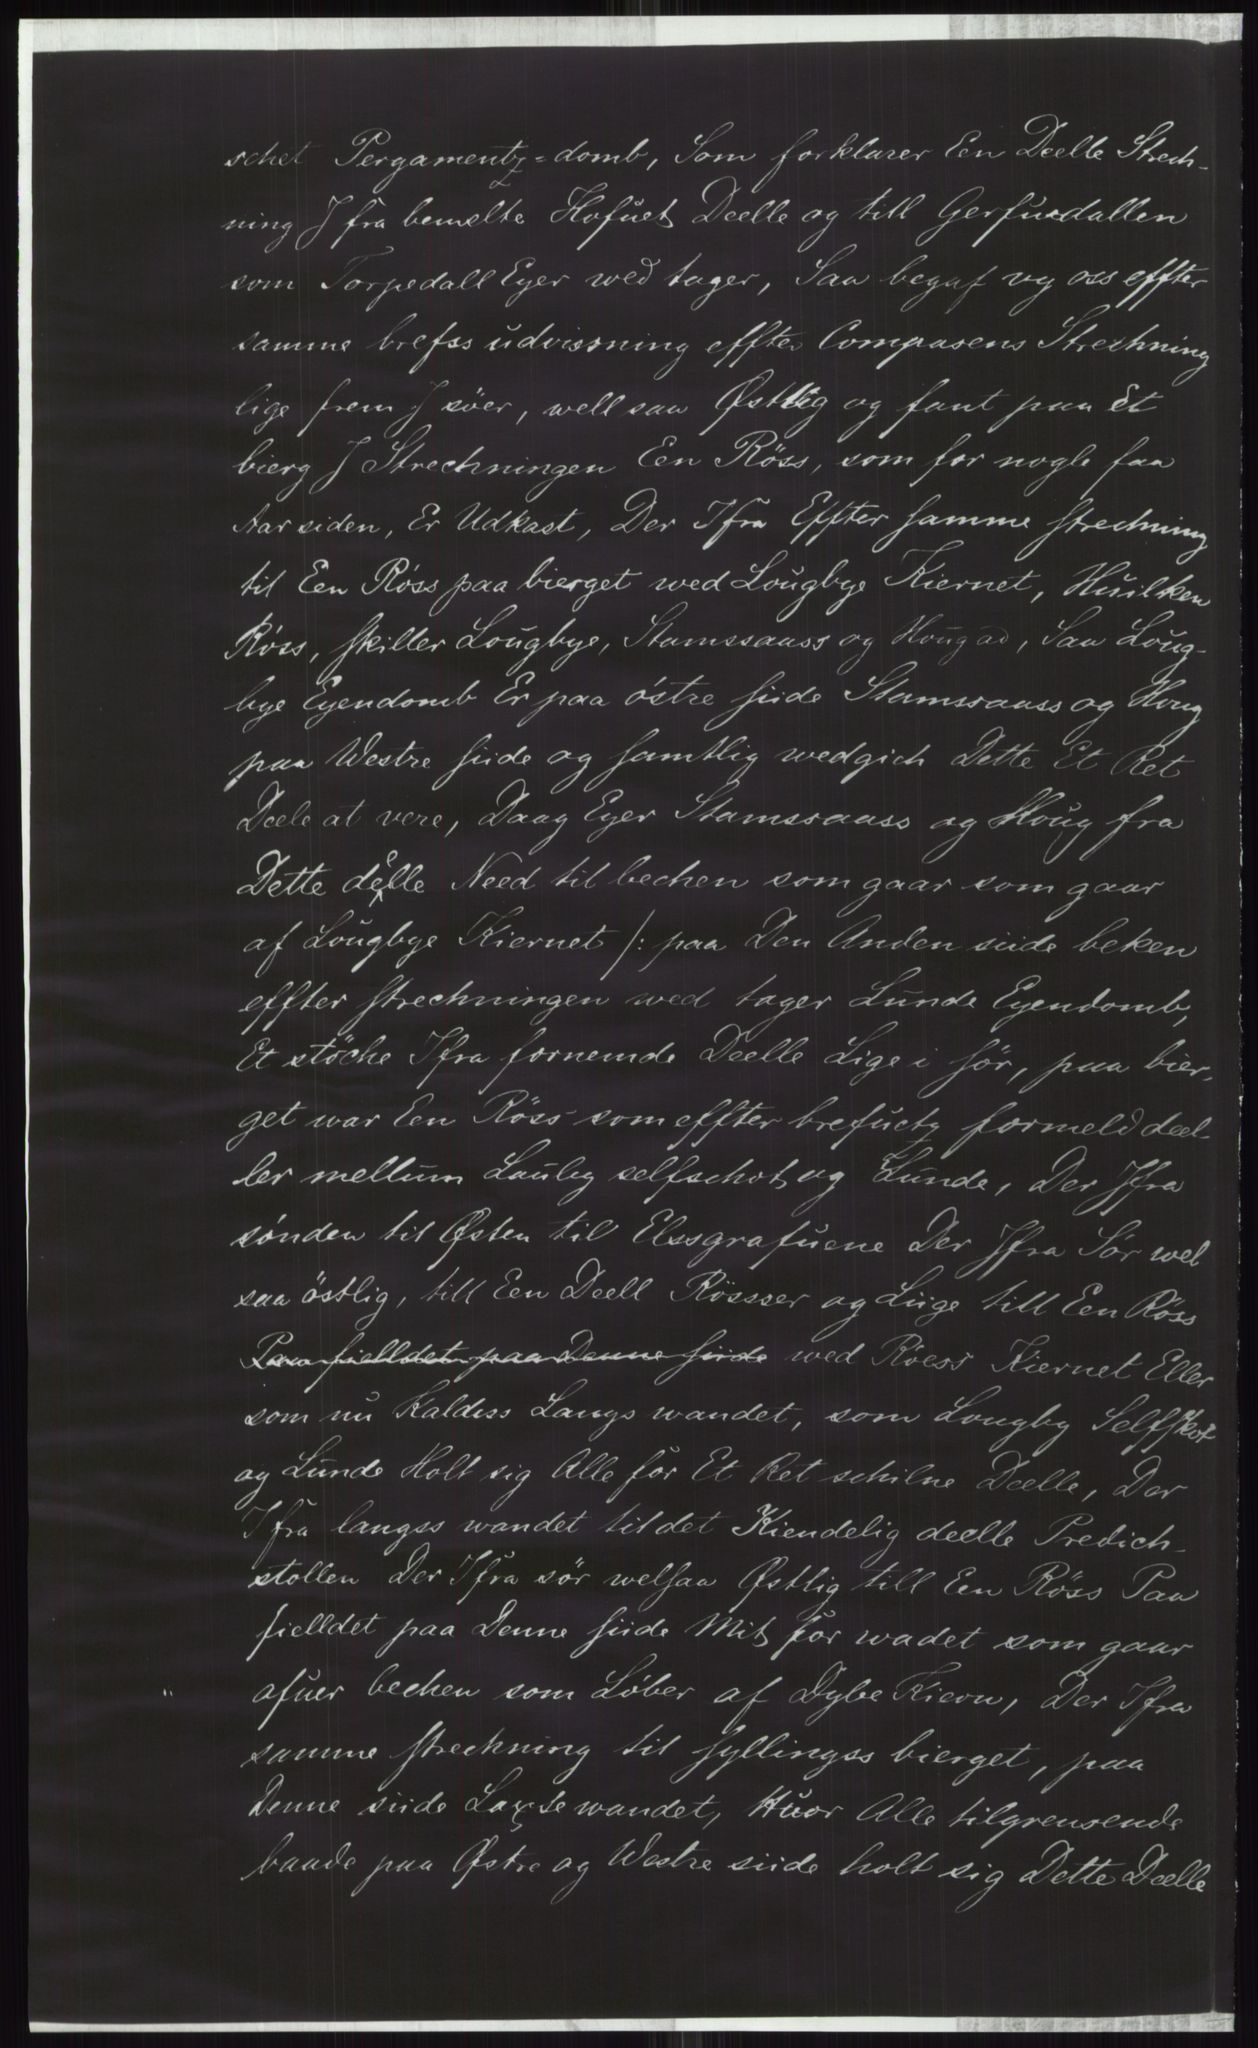 schet Pergamentz=domb, Som forklarer Een Deelle Strech-
ning J fra bemelte Hofuets Deelle og till Gerfuedallen
som Torpedall Eyer wed tager, Saa begaf vy oss effter
samme brefss udvissning effter Compasens Strechning
lige frem J söer, well saa Østlig og fant paa Et
bierg J Strechningen Een Röss, som for nogle faa
Aar siden, Er Udkast, Der Ifra Effter samme strechning
til Een Röss paa bierget wed Lougbye Kiernet, Huilken
Röss, skiller Lougbye, Stamssauss og Houg ad, Saa Loug-
bye Eyendomb Er paa östre siide Stamssauss og Houg
paa Westre siide og samtlig wedgich Dette Et Ret
Deele at vere, Daag Eyer Stamssauss og Houg fra
Dette deelle Need til bechen som gaar som gaar
af Lougbye Kiernet /: paa Den Anden siide beken
effter strechningen wed tager Lunde Eyendomb,
Et stöche Ifra fornemde Deelle Lige i sör, paa bier-
get war Een Röss som effter brefuetz formeld deel-
ler mellum Lauby selfschot og Lunde, Der Jfra
sönden til Østen til Elssgrafuene Der Jfra Sör wel
saa östlig, till Een Deell Rössser og Liige till Een Röss
Paa fielldet paa Denne siide wed Röess Kiernet Eller
som nu Kaldess Langs wandet, som Lougby Selfskot
og Lunde Holt sig Alle for Et Ret schilne Deelle, Der
Ifra langss wandet til det Kiendelig deelle Predich-
stollen Der Ifra sör welsaa Østlig till Een Röss Paa
fielldet paa Denne siide Mits for wadet som gaar
afuer bechen som Löber af Dybe Kiern, Der Ifra
samme streckning til hyllingss bierget, paa
Denne siide wandet, Huor Alle tilgrensende
baade paa Østre og Westre siide holt sig Dette Deelle